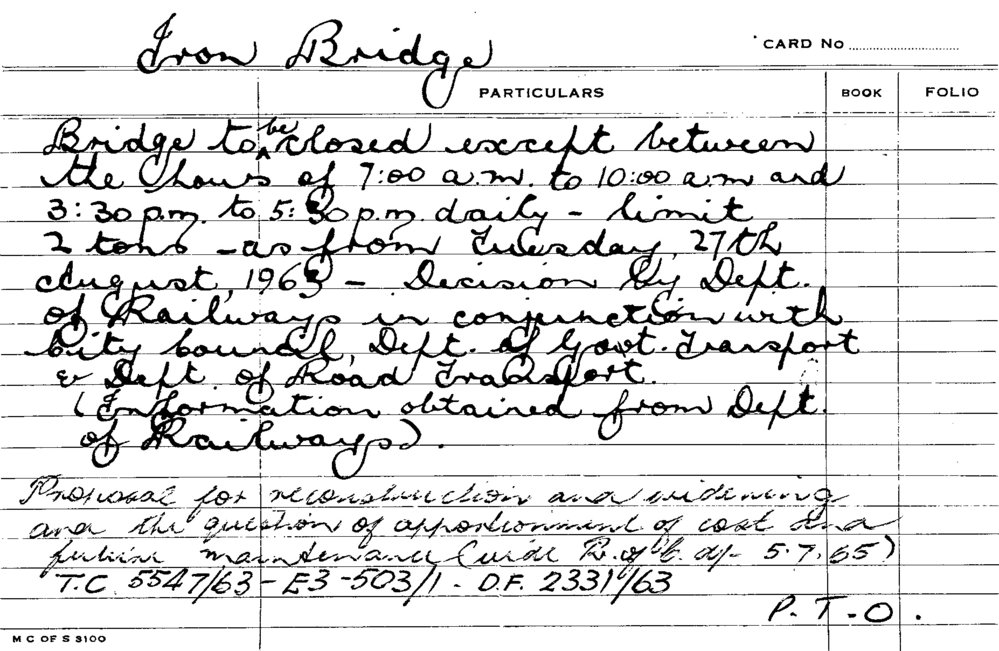 Iron Bridge
CARD No
PARTICULARS BOOK FOLIO
Bridge to be closed except between
the hours of 7:00 a.m. to 10:00 a.m and
3:30 p.m. to 5:30 p.m. daily – limit
2 tons – as from Tuesday, 27th
August, 1963 – Decision by Dept.
of Railways in conjunction with
City Council, Dept. of Govt. Transport
& Dept. of Road Transport.
(Information obtained from Dept.
of Railways).
Proposal for reconstruction and widening
and the question of apportionment of cost and
future maintenance (vide R. of C. d/- 5.7.65)
T.C. 5547/63 – E3-503/1. D.F. 2331/63
P.T.O.
M C OF S 3100